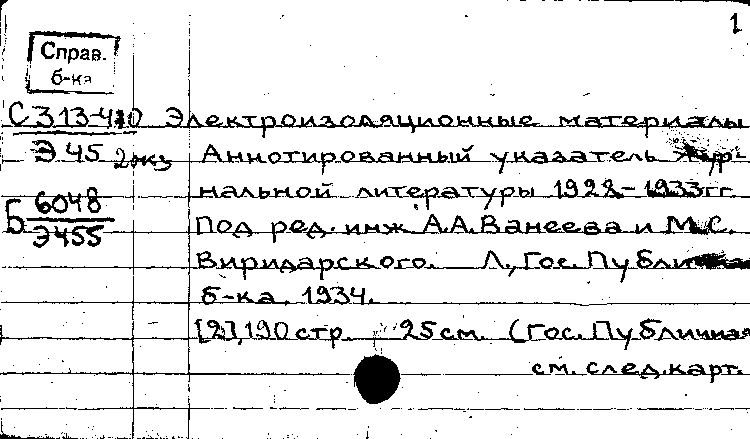 1
Справ.
б-ка
С 313-410 Электроизоляционные материалы
Э 45 2экз Аннотированный указатель жур-
нальной литературы 1928-1933гг
Б 6048 Под ред. инж А.А.Ванеева и М.С.
Э455 Виридарского. Л., Гос. Публичная
б-ка, 1934.
[2], 190 стр. 25 см. (Гос. Публичная
см. след. карт.